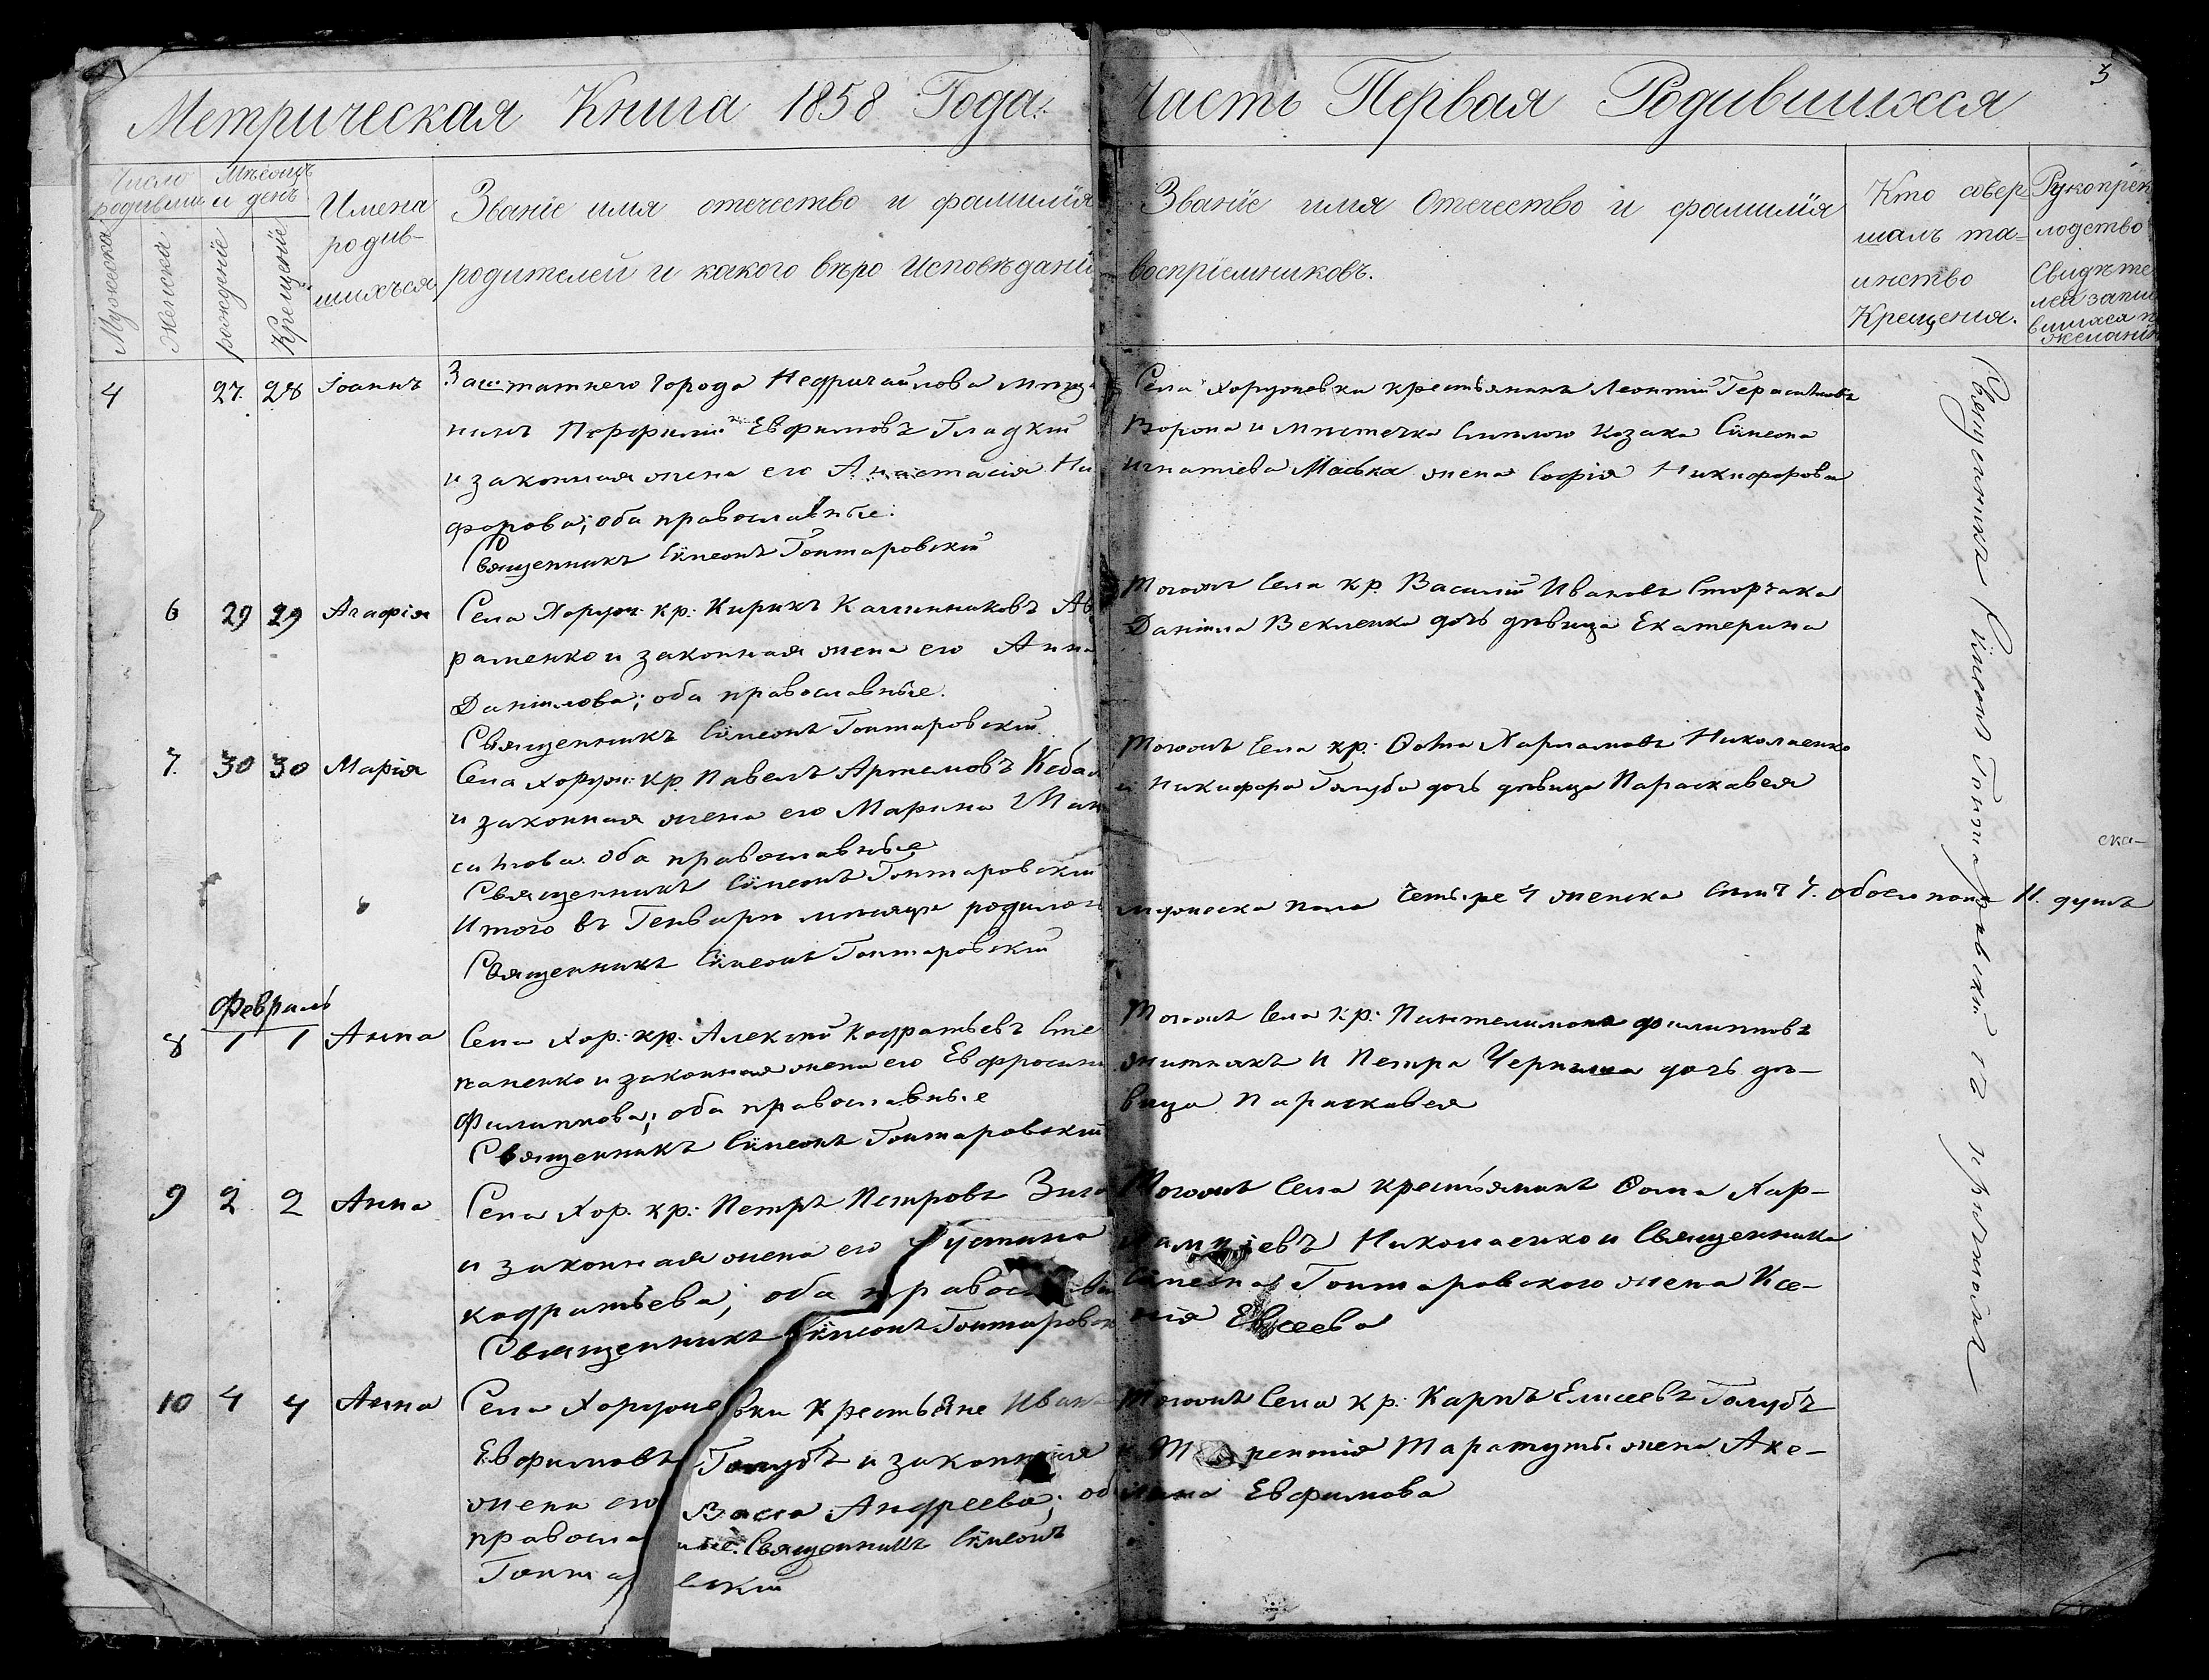 Метрическая Книга 1858 Года. Часть Первая Родившихся
3
Число родивши
Мѣсяцъ и день
Мужеска
Женска
рожденіе
Крещеніе
Имена
родив-
шихъся
Званіе имя отечество и фамилія
родителей и какого вѣро Исповѣдані
Званіе имя Отечество и фамилія
воспріемниковъ.
Кто совер
шалъ та=
инство
Крещения.
Рукоприк
лодство
Свидѣте
лей запи
вшихся п
желанію
4 27. 28 Іоаннъ
Заштатнего Города Недригайлова мѣща
нинъ Порфирій Евфимовъ Гладкій
и законная жена его Анастасія Ни
форова; оба православные.
Священникъ Сімеонъ Гонтаровскій
Села Хоружевки крестьянинъ Леонтій Герасимовъ
Ворона и мѣстечка Смѣлого Козака Сімеона
Игнатіева Маска жена Софія Никифорова
6 29 29 Агафія
Села Хоруж: кр: Кирикъ Калинниковъ Ав
раменко и законная жена его Анна
Даніилова; оба православные.
Священникъ Сімеонъ Гонтаровскій.
Тогожъ Села кр. Василій Ивановъ Сторчака
Даніила Векленка дочь дѣвица Екатерина
7. 30 30 Марія
Села Хоруж: кр. Павелъ Артемовъ Кобал
и законная жена его Марина
оба православные
Священникъ Сімеонъ Гонтаровскій
Тогожъ Села кр: Ѳома Харламовъ Николаенко
и Никифора Голуба дочь дѣвица Параскавея
Итого въ Генварѣ мѣсяцѣ родилось
мужеска пола четыре 4 женска 7. обоего пола 11. душъ
ска-
Священникъ Сімеонъ Гонтаровскій
Февраль
8 1 1 Анна
Села Хор: кр: Алексѣй Кодратьевъ Сте
паненко и законная жена его Евфросині
Филиппова; оба православные
Священникъ Сімеонъ Гонтаровскій
Тогожъ Села кр: Пантелимона филипповъ
житникъ и Петра Черныша дочь дѣ-
вица Параскавея
9 2 2 Анна
Села Хор. кр: Петръ Петровъ
и законная жена его Іустина
кодратьева; оба правосла
Священникъ Сімеонъ Гонтаровск
Тогожъ Села крестьянинъ Ѳома Хар-
лампіевъ Николаенко и Священника
Сімеона Гонтаровского жена Ксе-
нія Евсеева
10 4 4 Анна
Села Хоружевки Крестьяне Иван
Евфимовъ Голубъ и законная
жена его Васса Андреева; об
правосла ные. Священникъ Сімеонъ
Гонта вскій
Тогожъ Села кр: Карпъ Елисеевъ Голубъ
и Терентія Таратуты жена Аке-
лина Евфимова
Священникъ Сімеонъ Гонтаровскій съ причтомъ